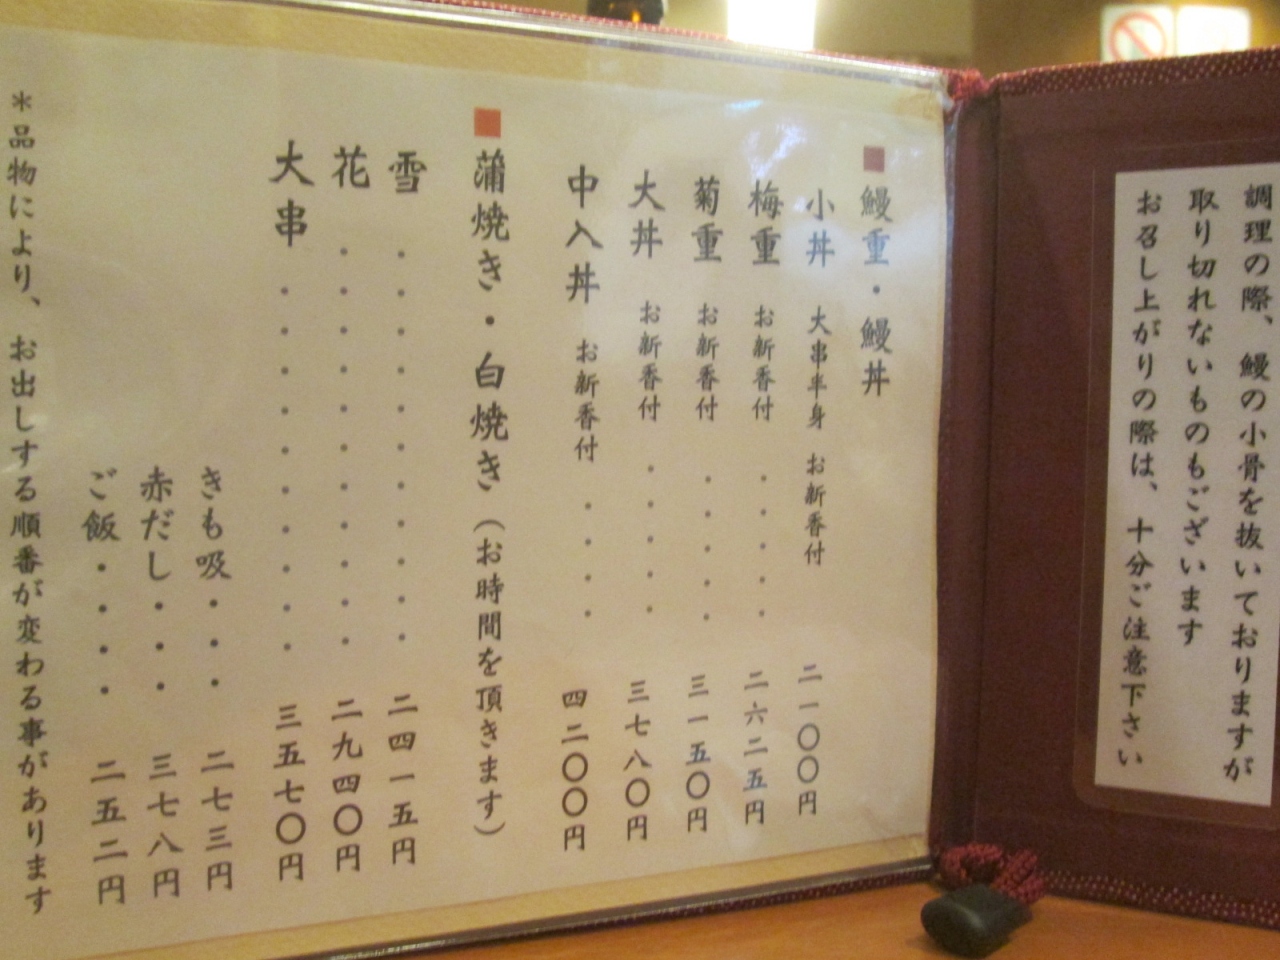 調理の際、鰻の小骨を抜いておりますが
取り切れないものもございます
お召し上がりの際は、十分ご注意下さい
■鰻重・鰻丼
小丼 大串半身 お新香付 二一〇〇円
梅重 お新香付・・・・・二六二五円
菊重 お新香付・・・・・三一五〇円
大丼 お新香付・・・・・三七八〇円
中入丼 お新香付・・・・四二〇〇円
■蒲焼き・白焼き(お時間を頂きます)
雪・・・・・・・・・・・二四一五円
花・・・・・・・・・・・二九四〇円
大串・・・・・・・・・・三五七〇円
きも吸・・・二七三円
赤だし・・・三七八円
ご飯・・・・二五二円
*品物により、お出しする順番が変わる事があります